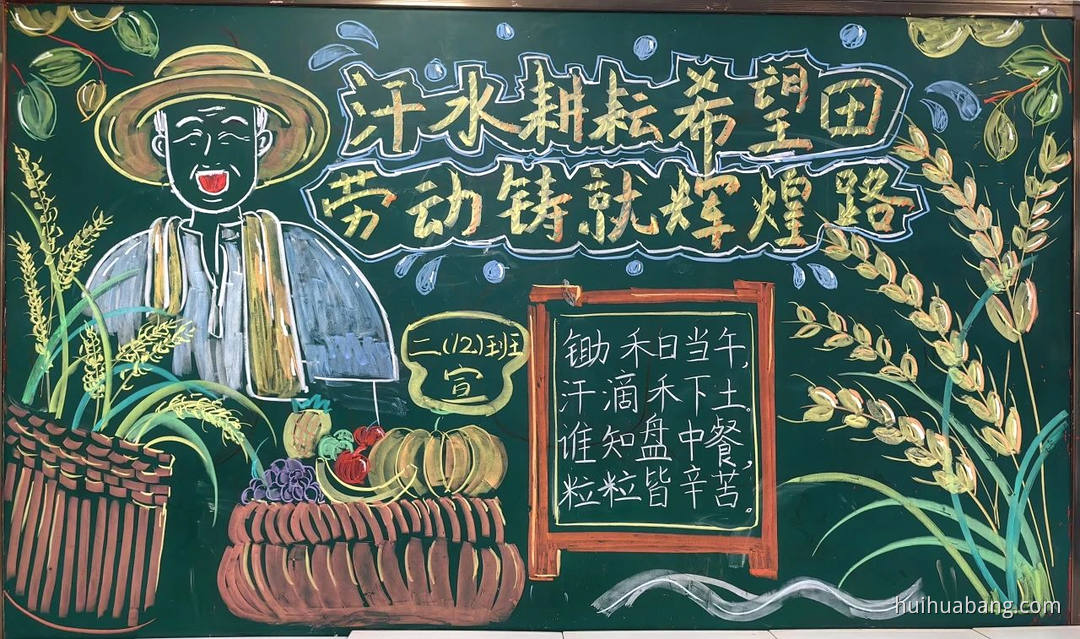 汗水耕耘希望田
劳动铸就辉煌路
二(12)班
宣
锄禾日当午,
汗滴禾下土。
谁知盘中餐,
粒粒皆辛苦。
huihuabang.com